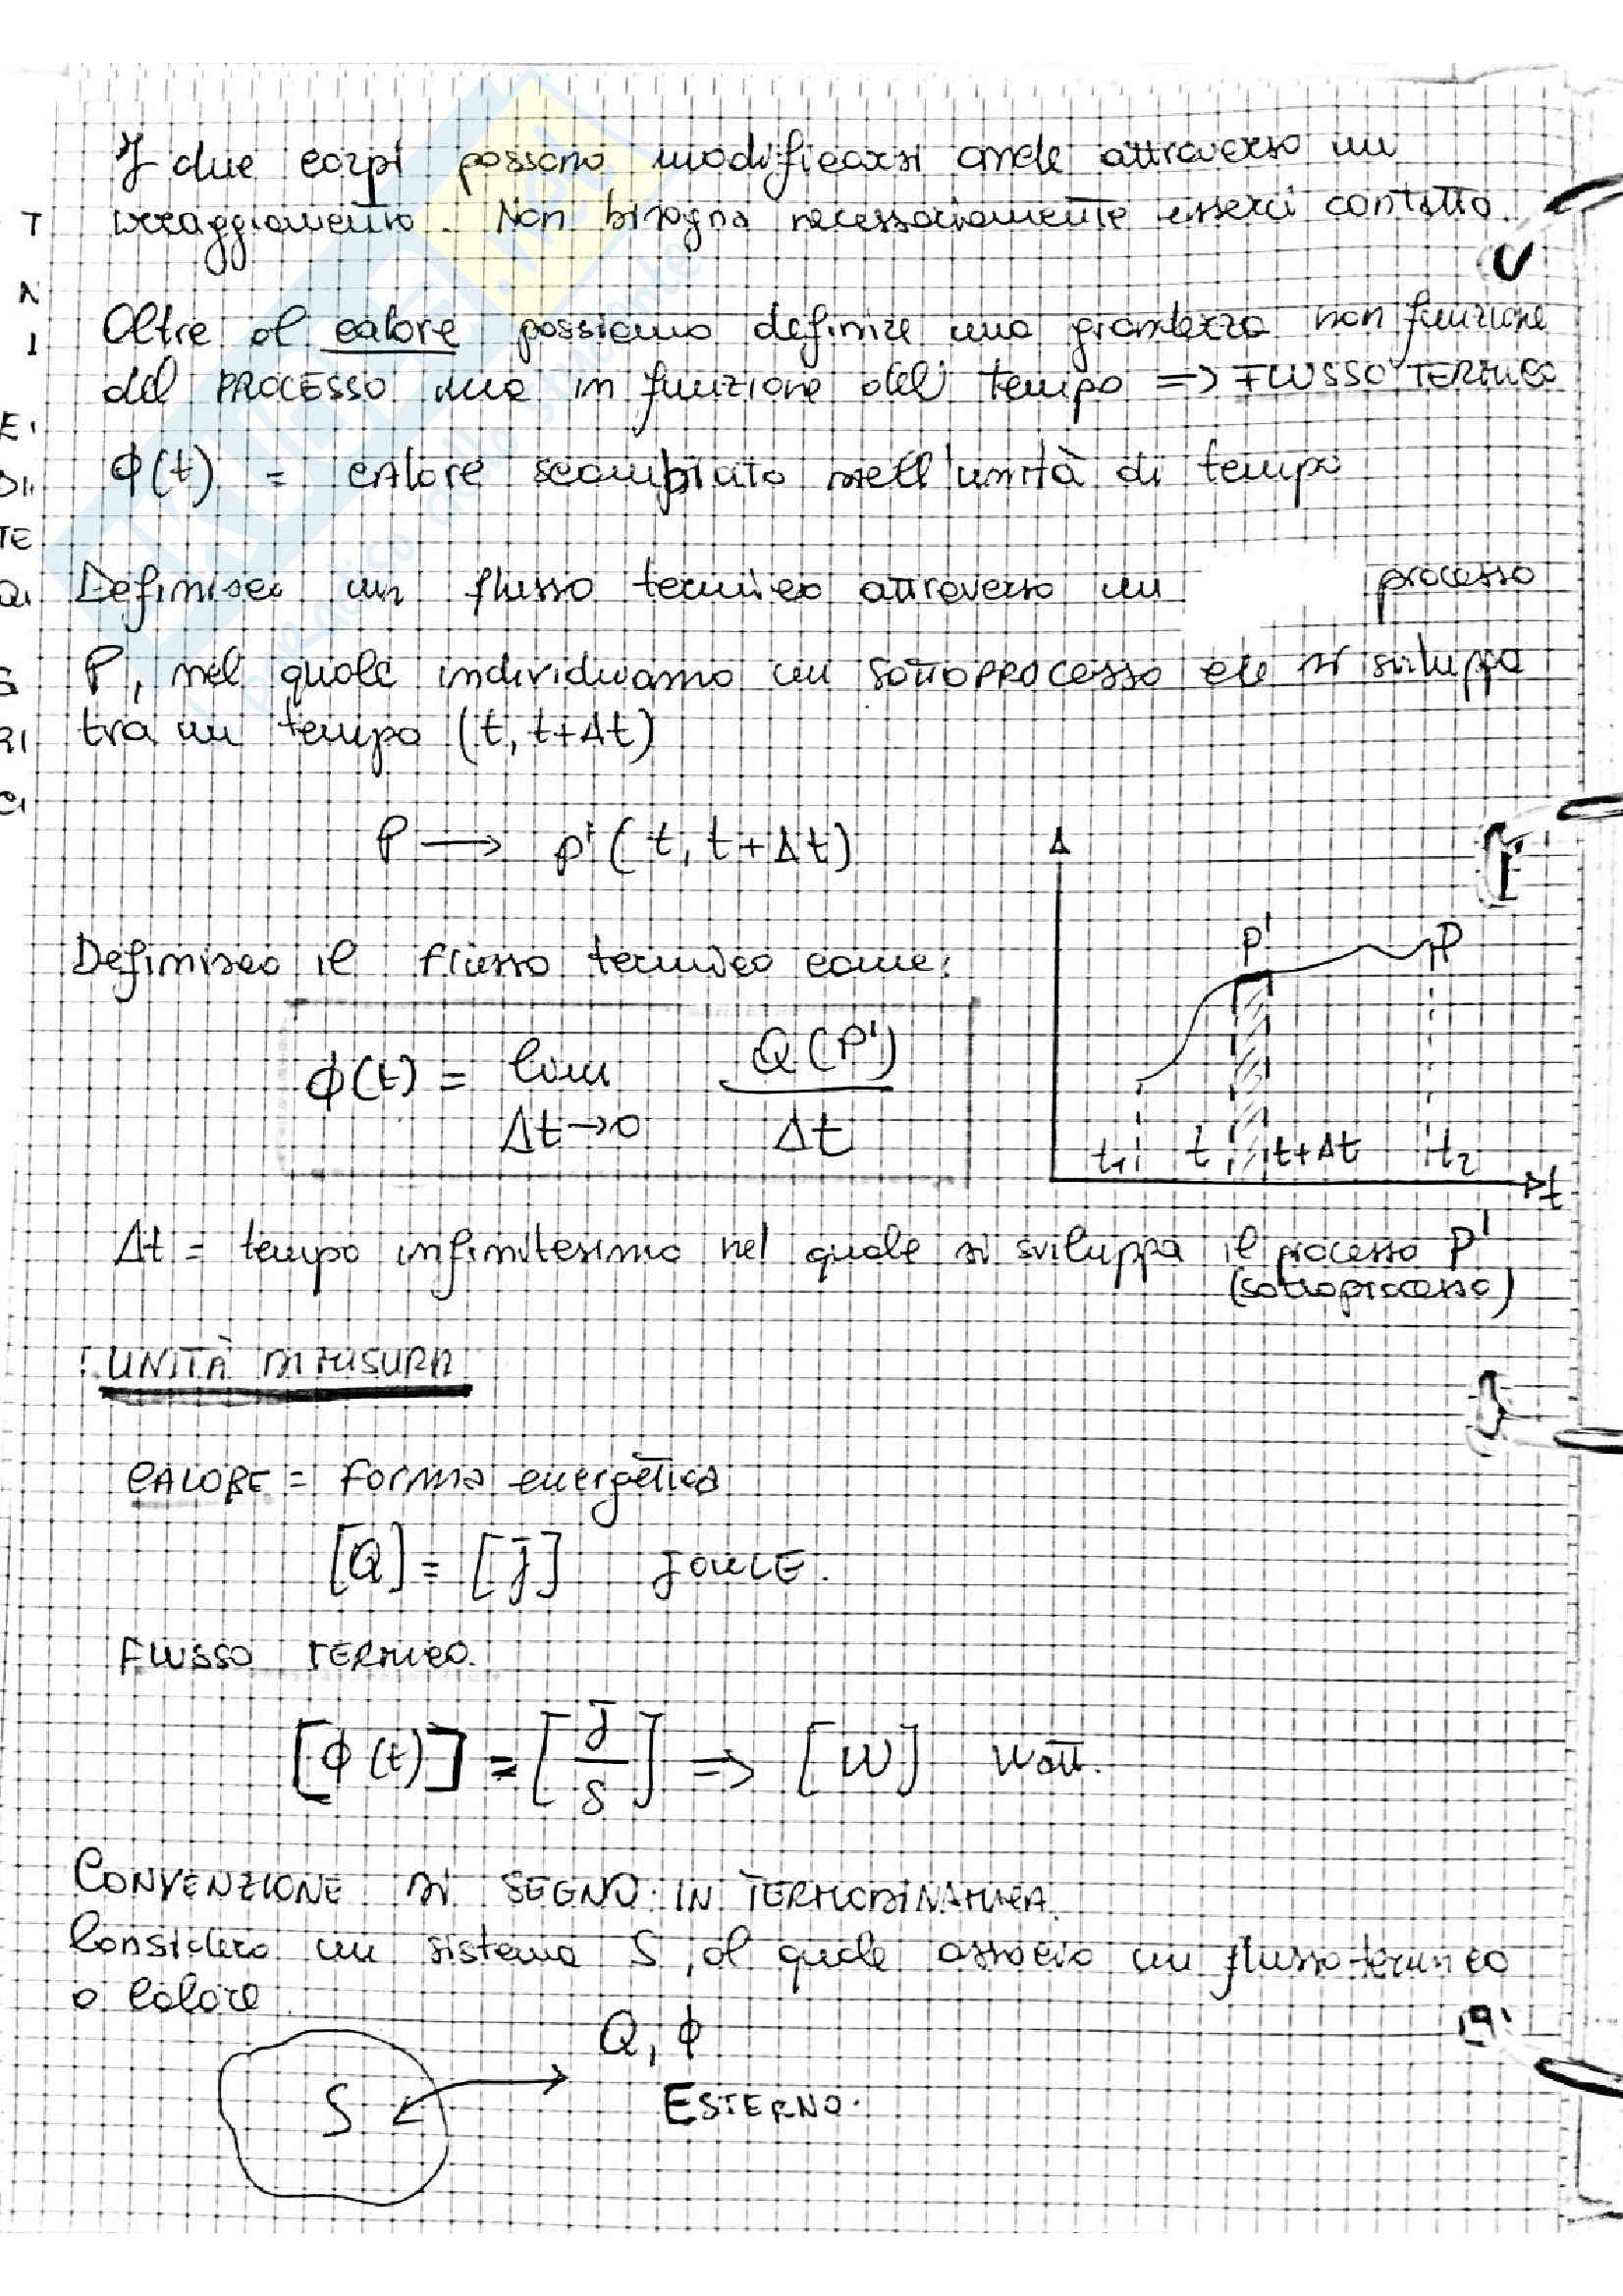 I due corpi possono modificarsi anche attraverso un
irraggiamento. Non bisogna necessariamente esserci contatto.
Oltre al calore possiamo definire una grandezza non funzione
del PROCESSO ma in funzione del tempo => FLUSSO TERMICO
ϕ(t) = CALORE scambiato nell'unità di tempo
Definisco un flusso termico attraverso un processo
P, nel quale individuiamo un SOTTOPROCESSO che si sviluppa
tra un tempo (t, t+Δt)
P → P'(t, t+Δt)
P' P
Definisco il flusso termico come:
ϕ(t) = lim Q(P')
Δt→0 Δt
t1 t t+Δt t2 t
Δt = tempo infinitesimo nel quale si sviluppa il processo P'
(sottoprocesso)
UNITÀ DI MISURA
CALORE = Forma energetica
[Q] = [J] JOULE.
FLUSSO TERMICO.
[ϕ(t)] = [J/S] => [W] Watt.
CONVENZIONE di SEGNO IN TERMODINAMICA.
Considero un sistema S, al quale associo un flusso termico
o calore
Q, ϕ
S ESTERNO.
T
N
I
E
DI
TE
S
RI
SKUOLA.net